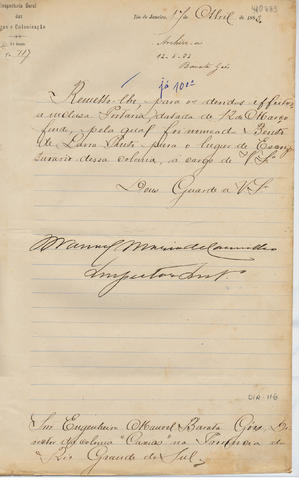 Inspectoria Geral
das
Terras e Colonização
Nº 717
Rio de Janeiro, 17 Abril de 188
440783
Archive-se
12.5.83
Barata Góes
Remetto-lhe, para os devidos effeitos,
a inclusa Portaria, datada de 12 de Março
findo, pela qual foi nomeado Bento
de Lavra Pinto para o lugar de Escri-
turario dessa colonia, a cargo de V. Sª
Deus Guarde a V. Sª
Manoel Maria de Carvalho
Inspector Intº
DIR-116
Snr Engenheiro Manoel Barata Góes Di-
rector da colonia "Caxias" na Provincia do
Rio Grande do Sul.